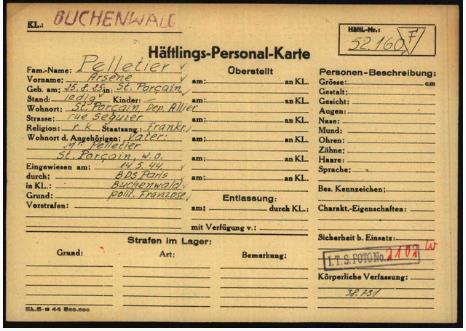 KL.: BUCHENWALD
Häftl.-Nr.:
52.160 F
Häftlings-Personal-Karte
Fam.-Name: Pelletier
Vorname: Arsène
Geb. am: 22.8.25 in: St. Porçain
Stand: ledig Kinder:
Wohnort: St. Porçain, Dep. Allier
Strasse: rue Seguier
Religion: r.k. Staatsang.: Frankr.
Wohnort d. Angehörigen: Vater:
Mr. Pelletier
St. Porçain, w.o.
Eingewiesen am: 14.5.44
durch: BDS Paris
in KL.: Buchenwald
Grund: polit. Franzose
Vorstrafen:
Überstellt
am: an KL.
am: an KL.
am: an KL.
am: an KL.
am: an KL.
am: an KL.
Entlassung:
am: durch KL.:
mit Verfügung v.:
Personen-Beschreibung:
Grösse: cm
Gestalt:
Gesicht:
Augen:
Nase:
Mund:
Ohren:
Zähne:
Haare:
Sprache:
Bes. Kennzeichen:
Charakt.-Eigenschaften:
Sicherheit b. Einsatz:
I.T.S. FOTO No. 2101
Körperliche Verfassung:
38.731
Strafen im Lager:
Grund: Art: Bemerkung: